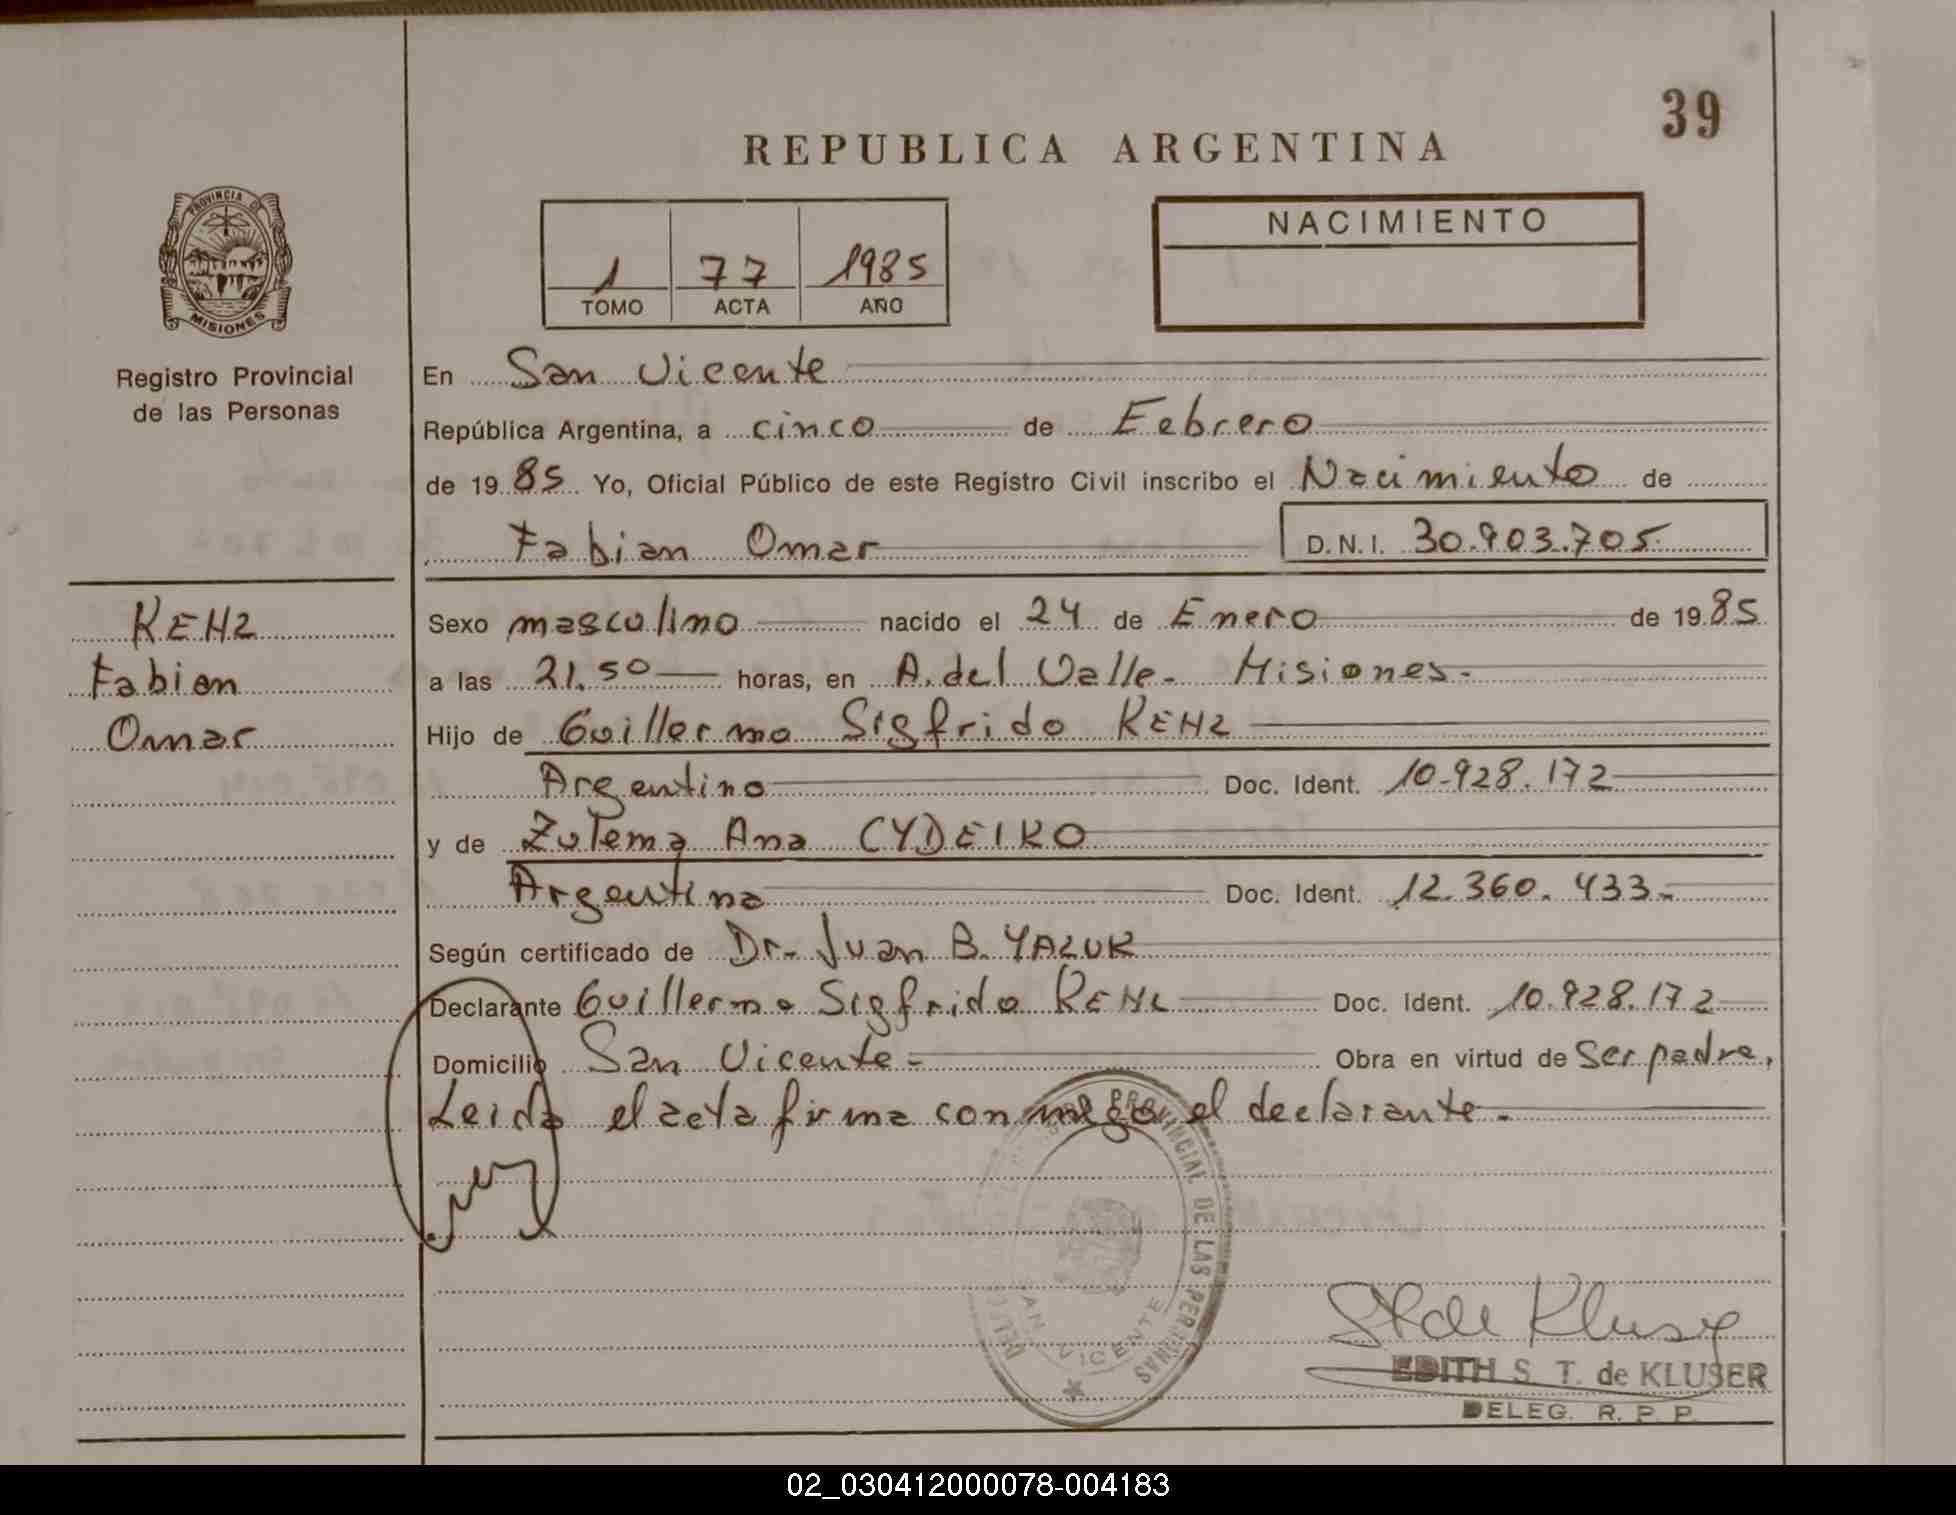 39
REPUBLICA ARGENTINA
PROVINCIA DE
MISIONES
Registro Provincial
de las Personas
1 77 1985
TOMO ACTA AÑO
NACIMIENTO
En San Vicente
República Argentina, a cinco de Febrero
de 1985 Yo, Oficial Público de este Registro Civil inscribo el Nacimiento de
Fabian Omar D.N.I. 30.903.705
KEHZ
Fabian
Omar
Sexo masculino nacido el 24 de Enero de 1985
a las 21.50 horas, en A. del Valle - Misiones.-
Hijo de Guillermo Sigfrido KEHZ
Argentino Doc. Ident. 10-928.172
y de Zulema Ana CYDEIKO
Argentina Doc. Ident. 12.360.433.-
Según certificado de Dr. Juan B. YAZUK
Declarante Guillermo Sigfrido KEHZ Doc. Ident. 10.928.172
Domicilio San Vicente.- Obra en virtud de ser padre,
Leida el acta firma conmigo el declarante.-
REGISTRO PROVINCIAL DE LAS PERSONAS
SAN VICENTE
EDITH S. T. de KLUSER
DELEG. R. P. P.
02_030412000078-004183